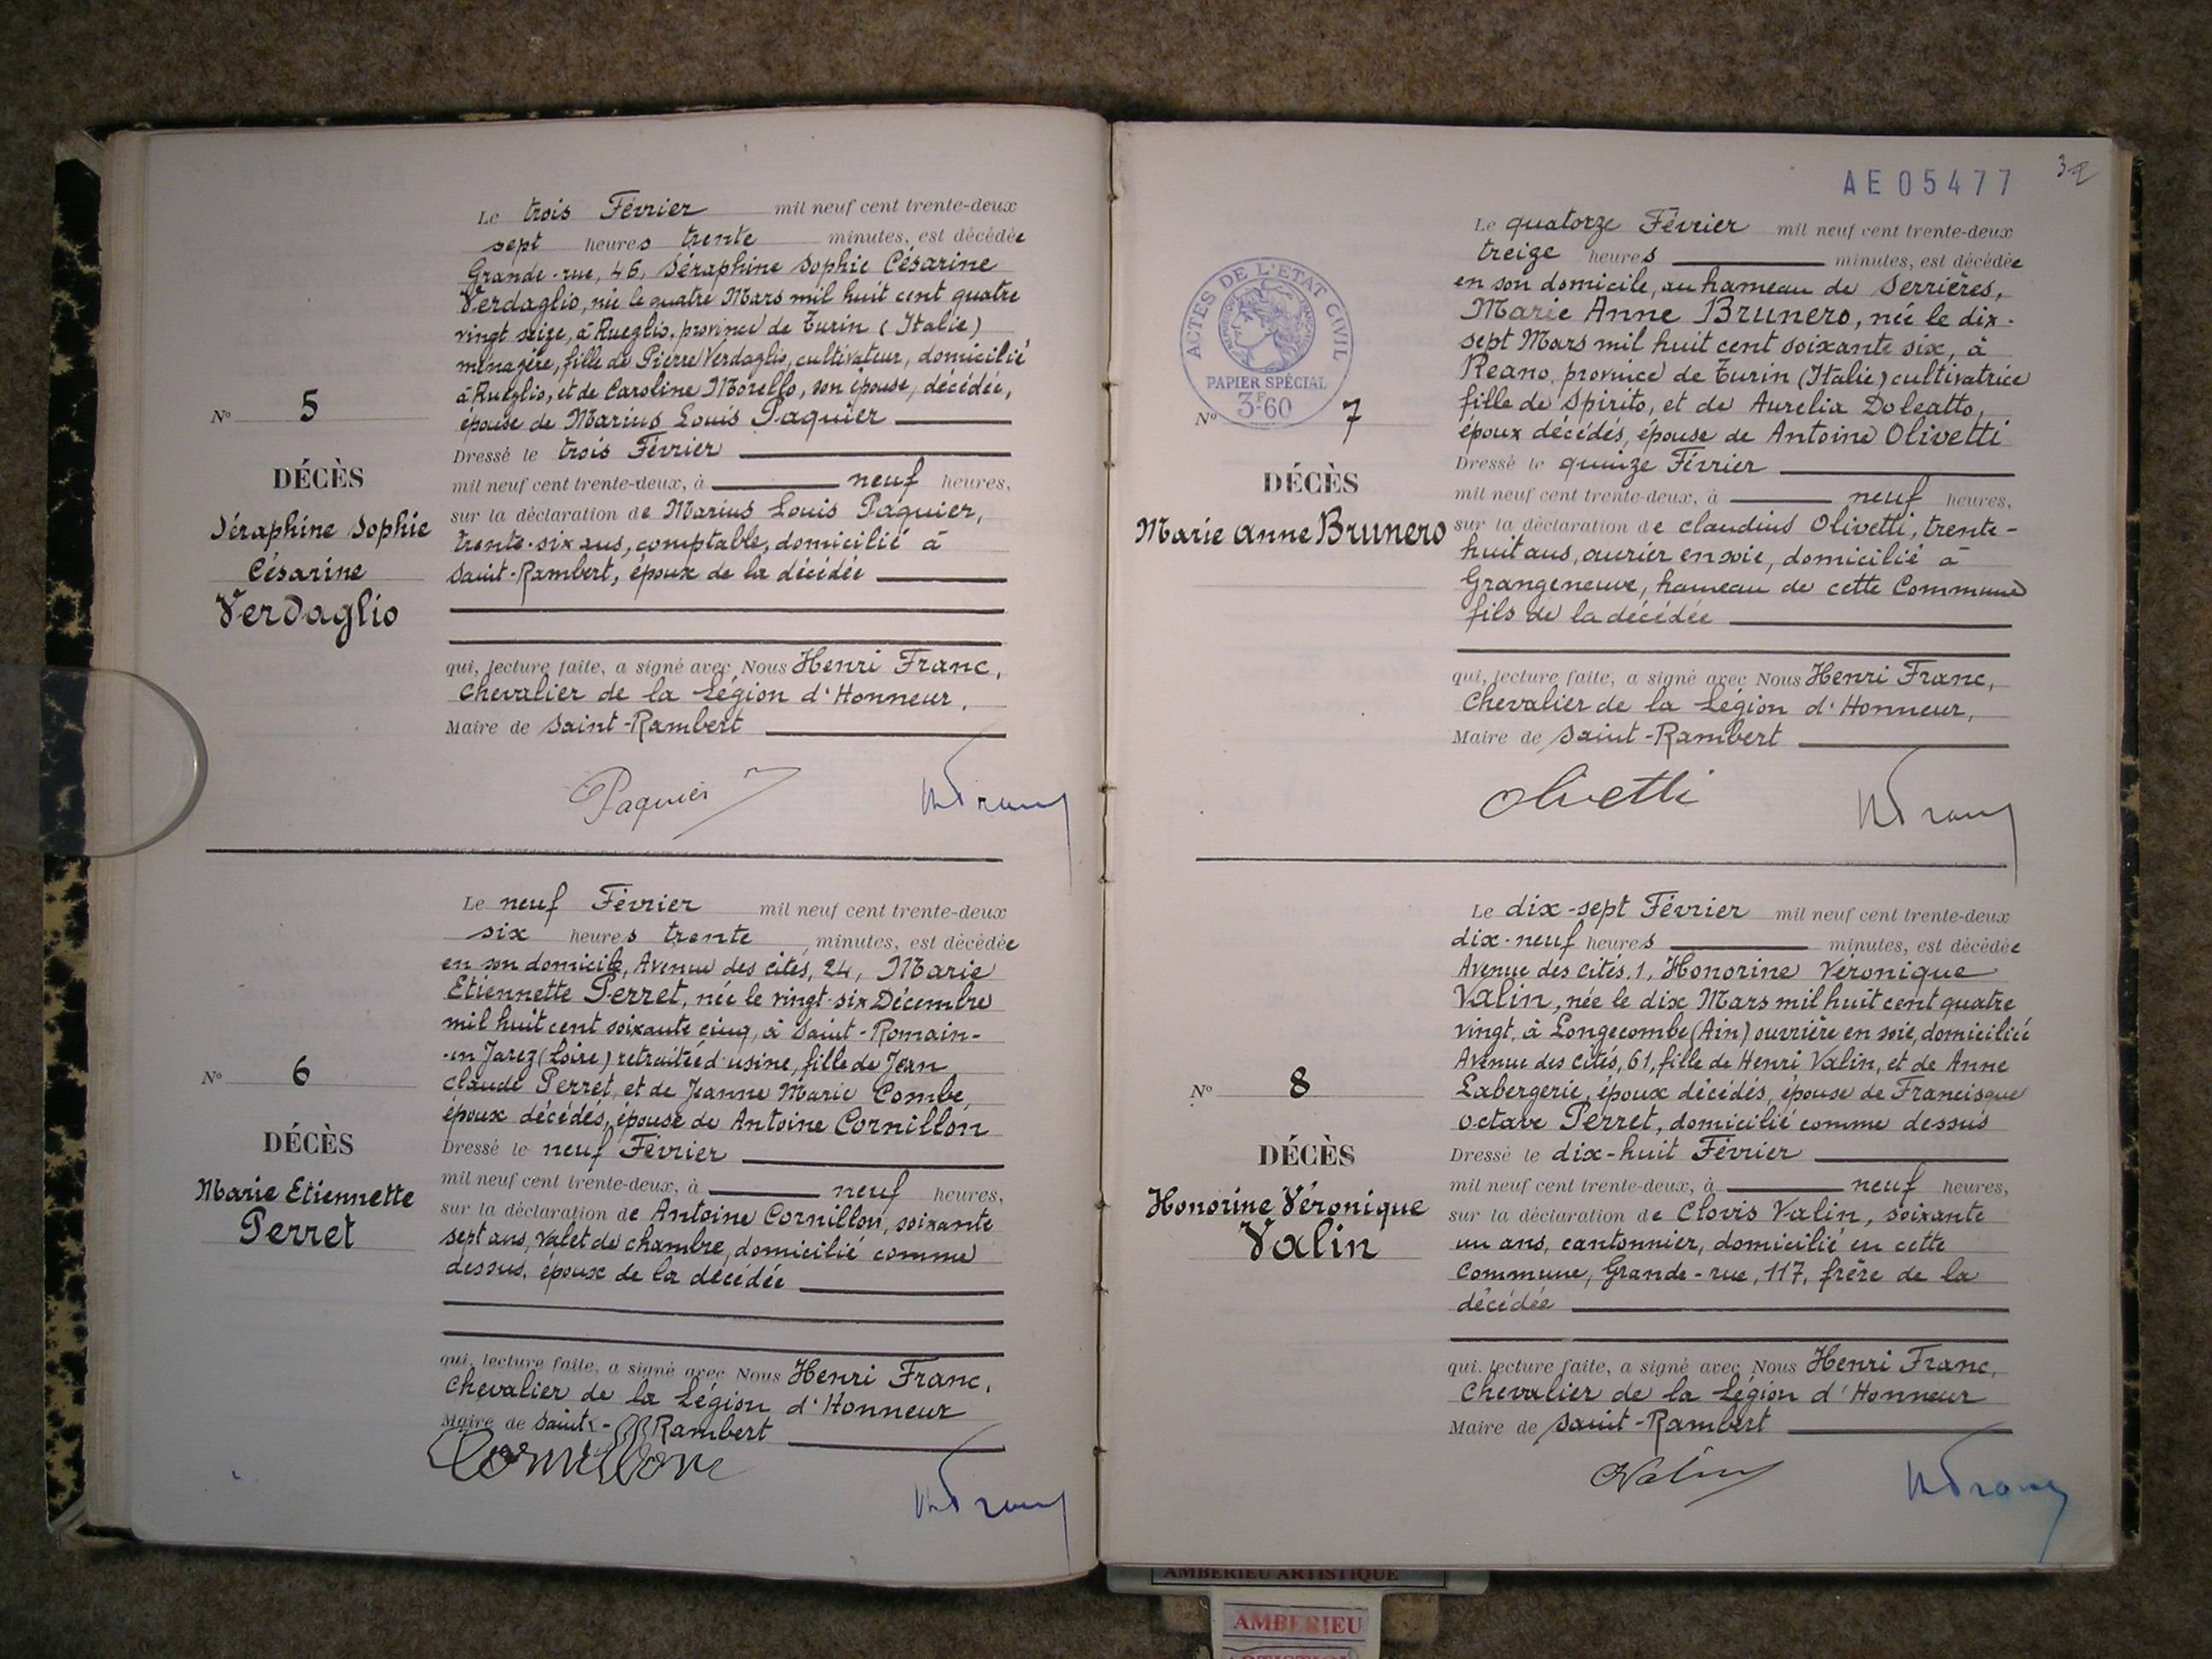 Le trois Février mil neuf cent trente-deux
sept heures trente minutes, est décédée
Grande-rue, 46, Séraphine Sophie Césarine
Verdaglio, née le quatre Mars mil huit cent quatre
vingt seize, à Rueglio, province de Turin (Italie)
ménagère, fille de Pierre Verdaglio, cultivateur, domicilié
à Rueglio, et de Caroline Morello, son épouse, décédée,
épouse de Marius Louis Paquier
Nº 5
Dressé le trois Février
DÉCÈS
mil neuf cent trente-deux, à neuf heures,
Séraphine Sophie
Césarine
Verdaglio
sur la déclaration de Marius Louis Paquier,
trente-six ans, comptable, domicilié à
Saint-Rambert, époux de la décédée
qui, lecture faite, a signé avec Nous Henri Franc,
Chevalier de la Légion d'Honneur,
Maire de Saint-Rambert
Paquier
Le neuf Février mil neuf cent trente-deux
six heures trente minutes, est décédée
en son domicile, Avenue des cités, 24, Marie
Etiennette Perret, née le vingt-six Décembre
mil huit cent soixante cinq, à Saint-Romain-
-en Jarez (Loire) retraitée d'usine, fille de Jean
Claude Perret, et de Jeanne Marie Combe,
époux décédés, épouse de Antoine Cornillon
Nº 6
Dressé le neuf Février
DÉCÈS
mil neuf cent trente-deux, à neuf heures,
Marie Etiennette
Perret
sur la déclaration de Antoine Cornillon, soixante
sept ans, valet de chambre, domicilié comme
dessus, époux de la décédée
qui, lecture faite, a signé avec Nous Henri Franc,
Chevalier de la Légion d'Honneur
Maire de Saint-Rambert
Cornillon
AE05477
32
ACTES DE L'ETAT CIVIL
PAPIER SPÉCIAL
3F60
Le quatorze Février mil neuf cent trente-deux
treize heures minutes, est décédée
en son domicile, au hameau de Serrières,
Marie Anne Brunero, née le dix-
sept Mars mil huit cent soixante six, à
Reano, province de Turin (Italie) cultivatrice
fille de Spirito, et de Aurelia Doleatto,
époux décédés, épouse de Antoine Olivetti
Nº 7
Dressé le quinze Février
DÉCÈS
mil neuf cent trente-deux, à neuf heures,
Marie Anne Brunero
sur la déclaration de Claudius Olivetti, trente-
huit ans, ouvrier en soie, domicilié à
Grangeneuve, hameau de cette Commune
fils de la décédée
qui, lecture faite, a signé avec Nous Henri Franc,
Chevalier de la Légion d'Honneur,
Maire de Saint-Rambert
Olivetti
Le dix-sept Février mil neuf cent trente-deux
dix-neuf heures minutes, est décédée
Avenue des cités, 1, Honorine Véronique
Valin, née le dix Mars mil huit cent quatre
vingt, à Longecombe (Ain) ouvrière en soie, domiciliée
Avenue des cités, 61, fille de Henri Valin, et de Anne
Labergerie, époux décédés, épouse de Francisque
Octave Perret, domicilié comme dessus
Nº 8
Dressé le dix-huit Février
DÉCÈS
mil neuf cent trente-deux, à neuf heures,
Honorine Véronique
Valin
sur la déclaration de Clovis Valin, soixante
un ans, cantonnier, domicilié en cette
Commune, Grande-rue, 117, frère de la
décédée
qui, lecture faite, a signé avec Nous Henri Franc,
Chevalier de la Légion d'Honneur
Maire de Saint-Rambert
CValin
AMBERIEU ARTISTIQUE
AMBERIEU